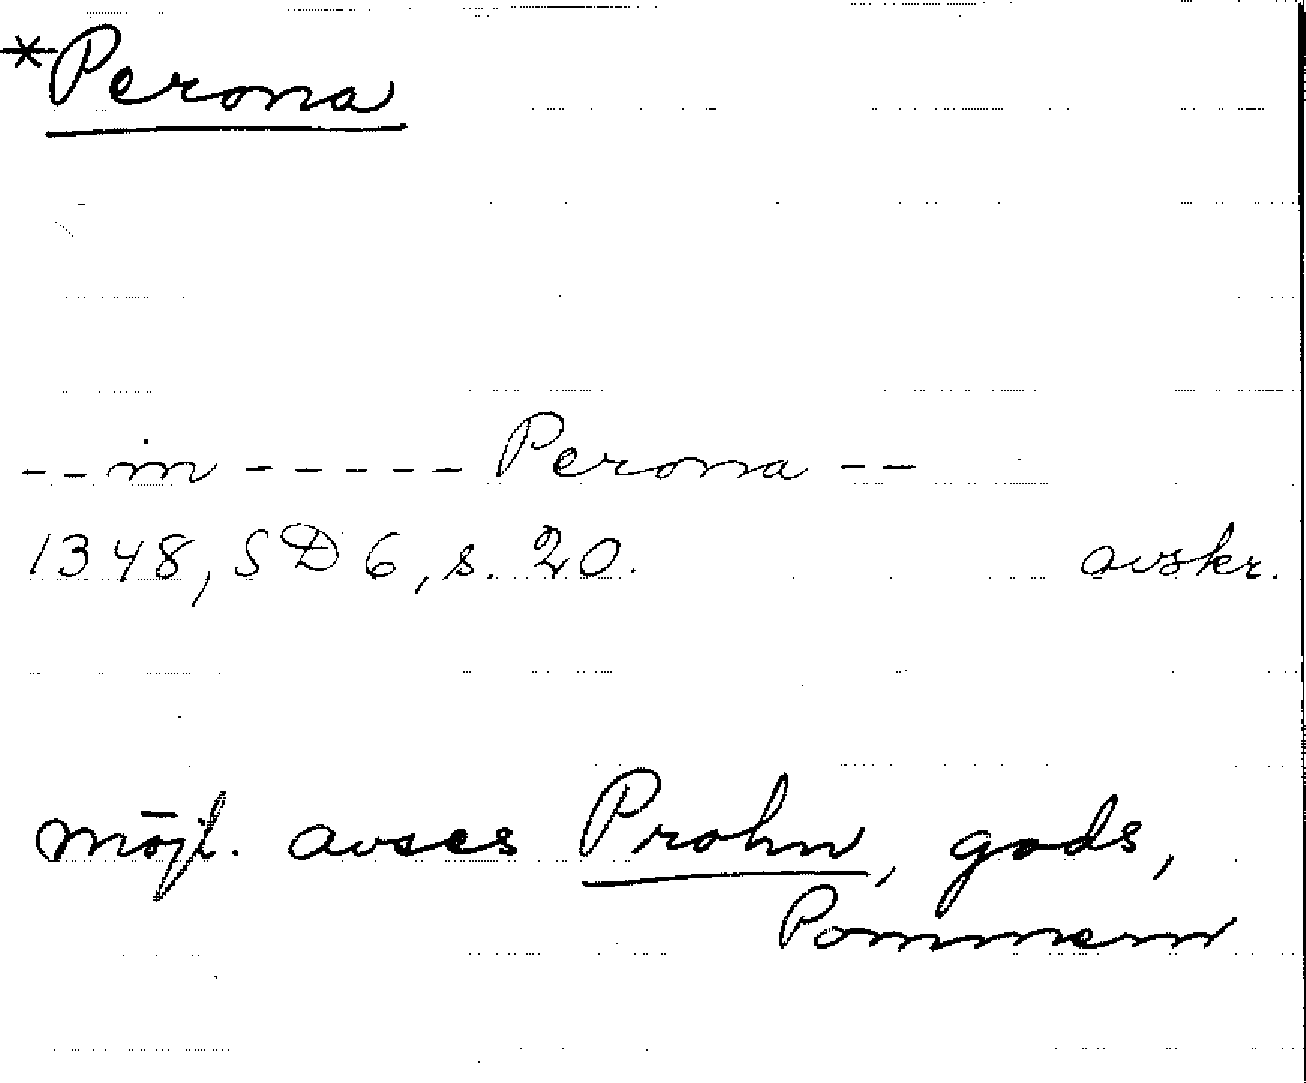 *Perona
-- in ----- Perona --
1348, SD 6, s. 20. avskr.
möjl. avses Prohn, gods,
Pommern